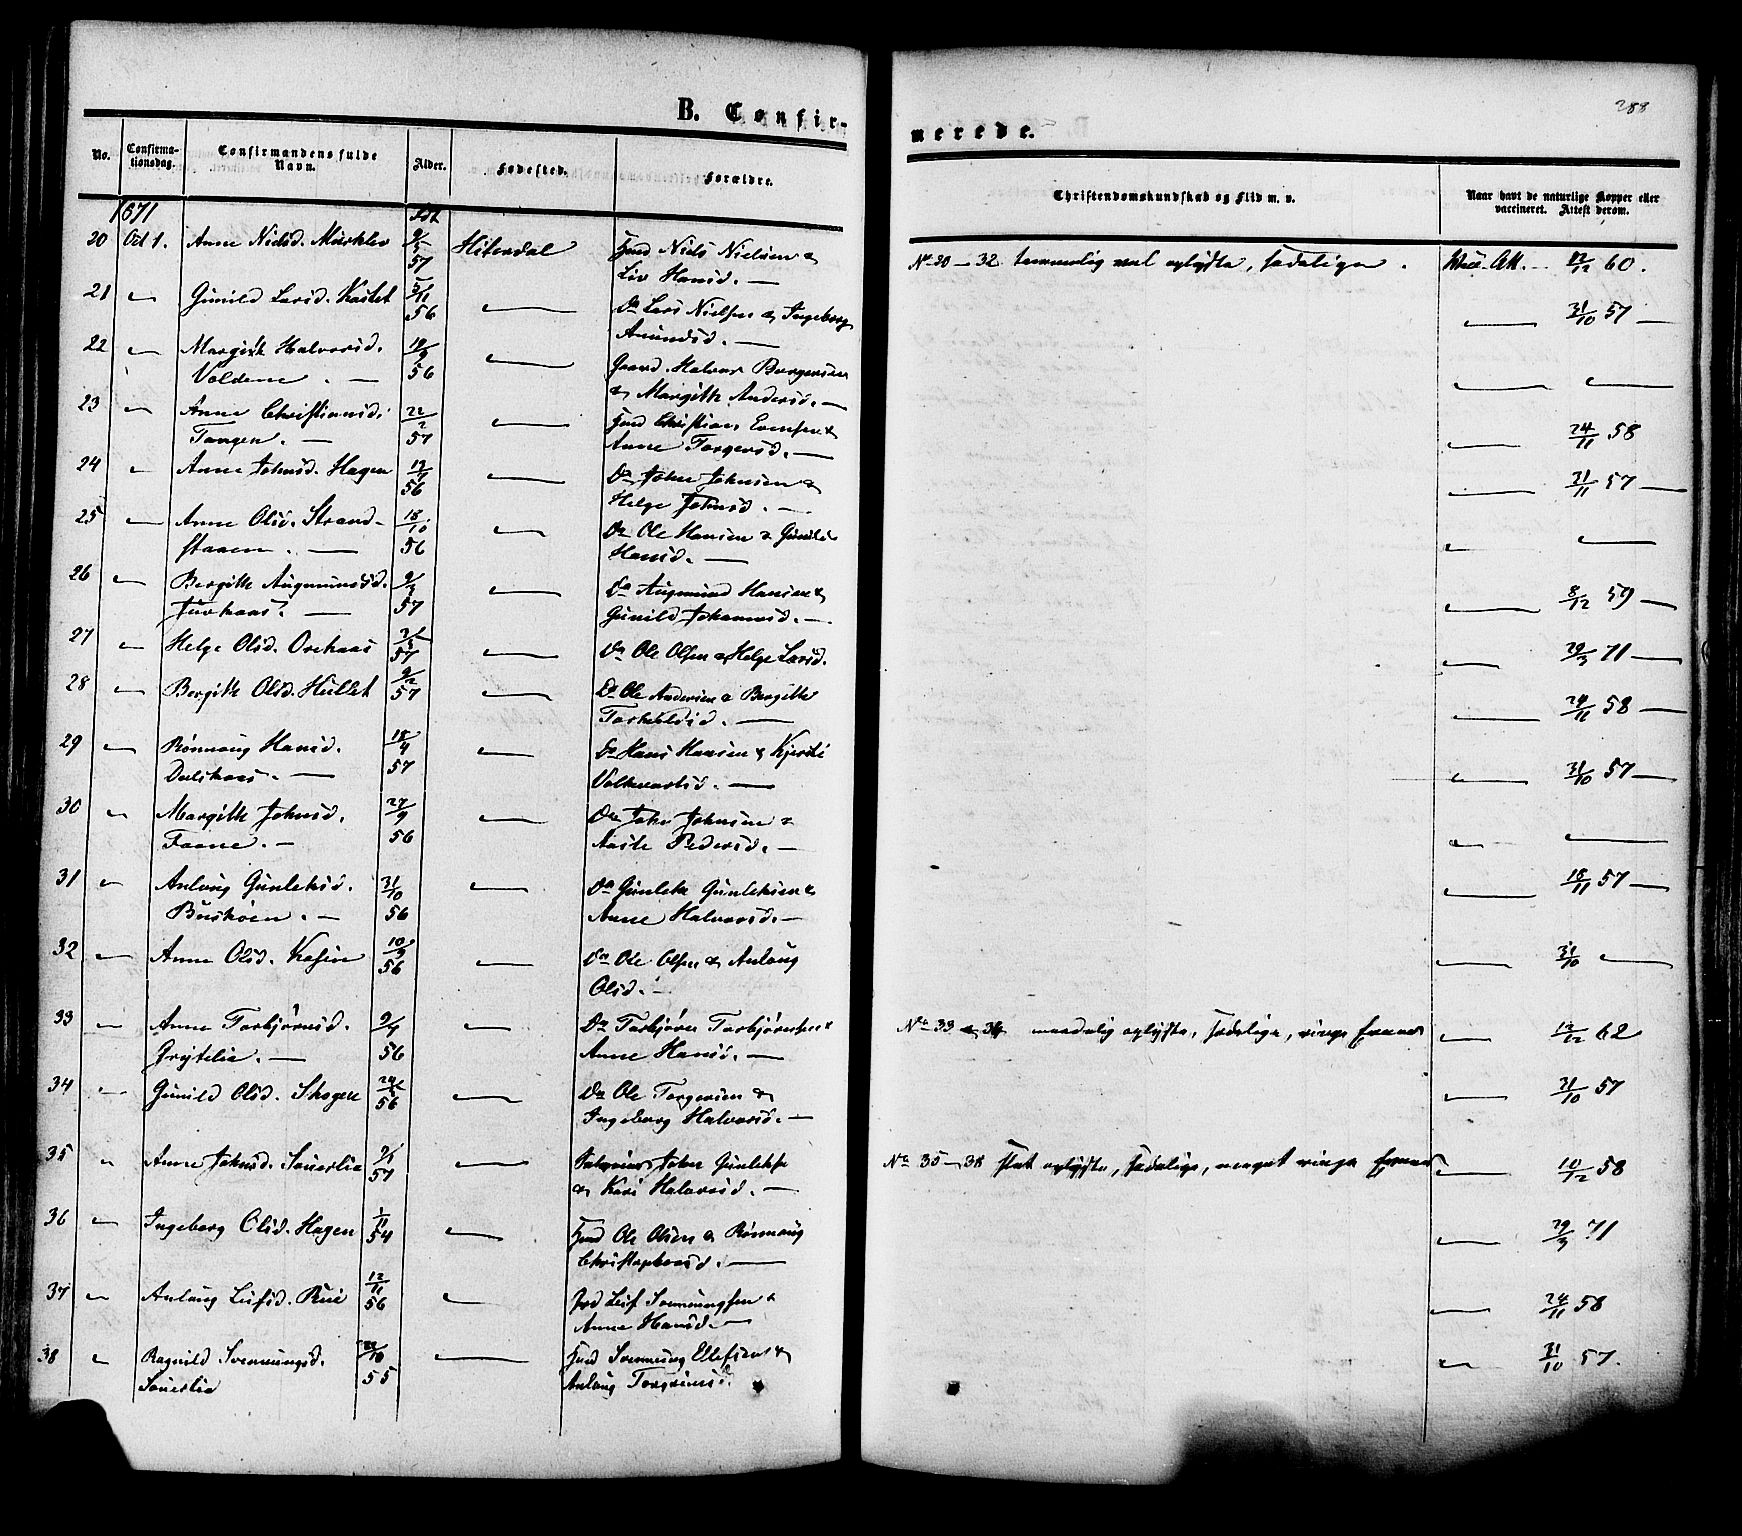 B. Confir-
merede.
288
No.
Confirma-
tionsdag.
Confirmandens fulde
Navn.
Alder.
Fødested.
Forældre.
Christendomskundskab og Flid m. v.
Naar havt de naturlige Kopper eller
vaccineret. Attest derom.
1871
20 Oct 1. Anne Nielsd. Mürklev 9/5 57 Hiterdal Hmd Niels Nielsen &
Liv Hansd. —
No 20 – 32 temmelig vel oplyste, sædelige. Vac. Att. 12/12 60.
21 " Gunild Larsd. Kastet 5/11 56 " Do Lars Nielsen & Ingeborg
Amundsd. — " 31/10 57 —
22 " Margith Halvorsd.
Voldene. — 10/9 56 " Gaard. Halvor Borgersen
& Margith Andersd. — " "
23 " Anne Christiansd.
Tangen. — 22/2 57 " Hmd Christian Evensen &
Anne Torgersd. — " 24/11 58
24 " Anne Johnsd. Hagen 12/11 56 " Do John Johnsen &
Helge Johnsd. — " 31/11 57 —
25 " Anne Olsd. Strand-
staaen. — 18/10 56 " Do Ole Hansen & Gunild
Hansd. — " "
26 " Bergith Augmunsd.
Juvhaas. — 9/3 57 " Do Augmund Hansen &
Gunild Johannsd. — " 8/12 59 —
27 " Helge Olsd. Orehaas 2/5 57 " Do Ole Olsen & Helge Larsd. " 29/3 71 —
28 " Bergith Olsd. Hullet 9/2 57 " Do Ole Andersen & Bergithe
Torkeldsd. — " 24/11 58 —
29 " Rønnaug Hansd.
Dalshaas. — 18/4 57 " Do Hans Hansen & Kjersti
Volkvartsd. — " 31/10 57 —
30 " Margith Johnsd.
Faane. — 27/9 56 " Do John Johnsen &
Aaste Pedersd. — " "
31 " Anlaug Gunleksd.
Buskøen. — 31/10 56 " Do Gunlek Gunleksen &
Anne Halvorsd. — " 18/11 57 —
32 " Anne Olsd. Kasin 10/9 56 " Do Ole Olsen & Anlaug
Olsd. — " 31/10 "
33 " Anne Torbjørnsd.
Grytelia. — 9/4 56 " Do Torbjørn Torbjørnsen &
Anne Hansd. —
No 33 & 34 maadelig oplyste, sædelige, ringe Evner " 12/12 62
34 " Gunild Olsd. Skogen 56 " Do Ole Torgersen &
Ingeborg Halvorsd. — " 31/10 57
35 " Anne Johnsd. Sauerlia 2/1 57 " John Gunleksen
& Kari Halvorsd. —
No 35 – 38 slet oplyste, sædelige, meget ringe Evner " 10/12 58
36 " Ingeborg Olsd. Hagen 1/11 54 " Hmd Ole Olsen & Rønnaug
Christophersd. — " 29/3 71
37 " Anlaug Leifsd. Rue 12/11 56 " Leif Svennungsen &
Anne Hansd. — " 24/11 58
38 " Ragnild Svennungsd.
Sauerlia 22/10 55 " Hmd Svennung Ellefsen &
Anlaug Torgrimsd. " 31/10 57.